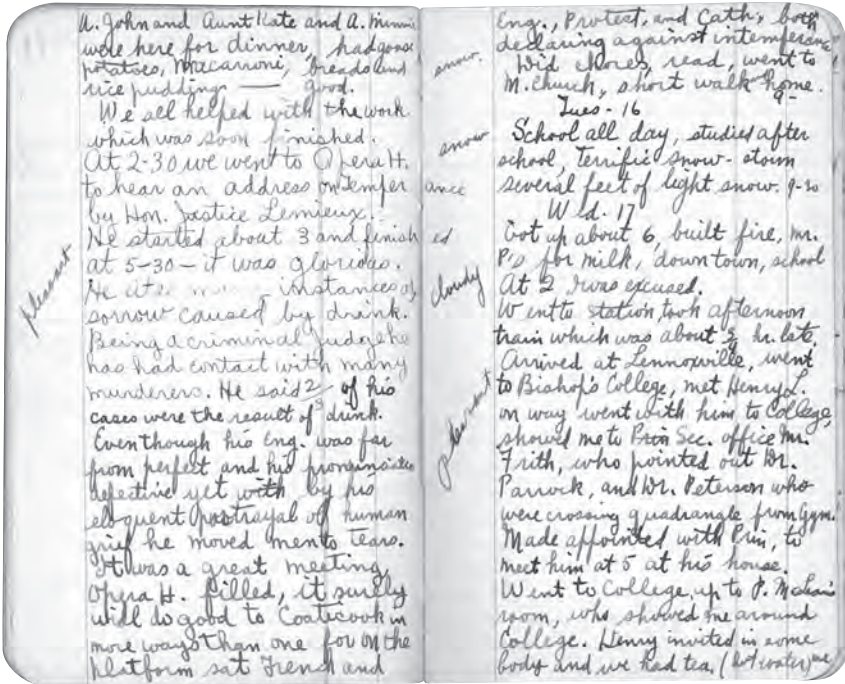 A. John and Aunt Kate and A. Minnie
were here for dinner, had goose
potatoes, Maccarroni, breads and
rice pudding — good.
We all helped with the work
which was soon finished.
At 2-30 we went to Opera H.
to hear an address on Temper
by Hon. Justice Lemieux.
He started about 3 and finish
at 5-30 - it was glorious.
pleasant
He instances of
sorrow caused by drink.
Being a criminal judge he
has had contact with many
murderers. He said 2/3 of his
cases were the result of drink.
Even though his Eng. was far
from perfect and his pronunciation
defective yet with by his
eloquent portrayal of human
grief he moved men to tears.
It was a great meeting,
Opera H. filled, it surely
will do good to Coaticook in
more ways than one for on the
platform sat French and
Eng., Protest. and Cath., both
declaring against intemperance!
snow.
Did chores, read, went to
M. Church, short walk home.
9-
Tues - 16
snow
School all day, studies after
school, Terrific snow-storm
ance
several feet of light snow. 9-30
Wed. 17
ed
Got up about 6, built fire, Mr.
P's for milk, down town, school
cloudy
At 2 I was excused.
Went to station, took afternoon
train which was about 3/4 hr. late.
Arrived at Lennoxville, went
to Bishop's College, met Henry L.
pleasant
on way went with him to College,
showed me to Prin Sec. office Mr.
Frith, who pointed out Dr.
Parrock, and Dr. Peterson who
were crossing quadrangle from Gym.
Made appointed with Prin, to
meet him at 5 at his house.
Went to College, up to P. McLean's
room, who showed me around
College. Henry invited in some
body and we had tea. (hot water)